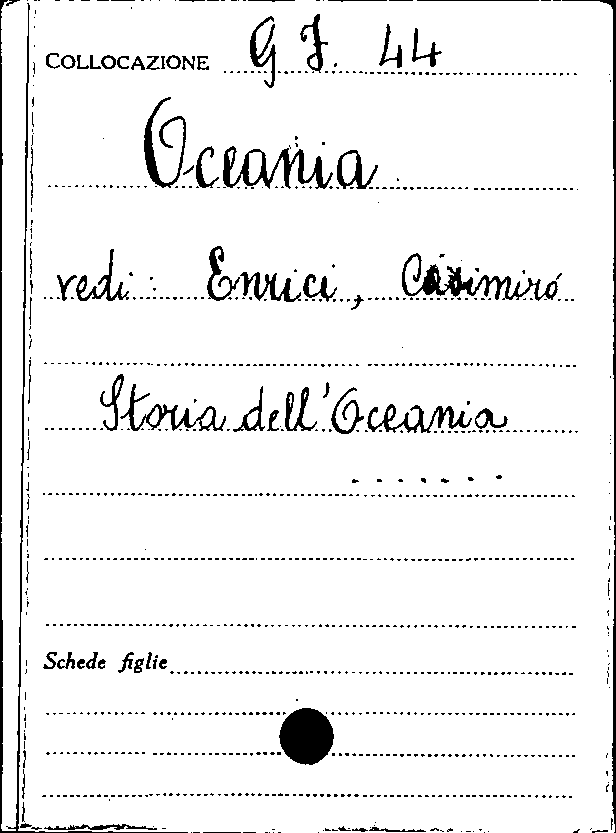 COLLOCAZIONE G J. 44
Oceania
vedi: Enrici, Casimiro
Storia dell'Oceania
.......
Schede figlie